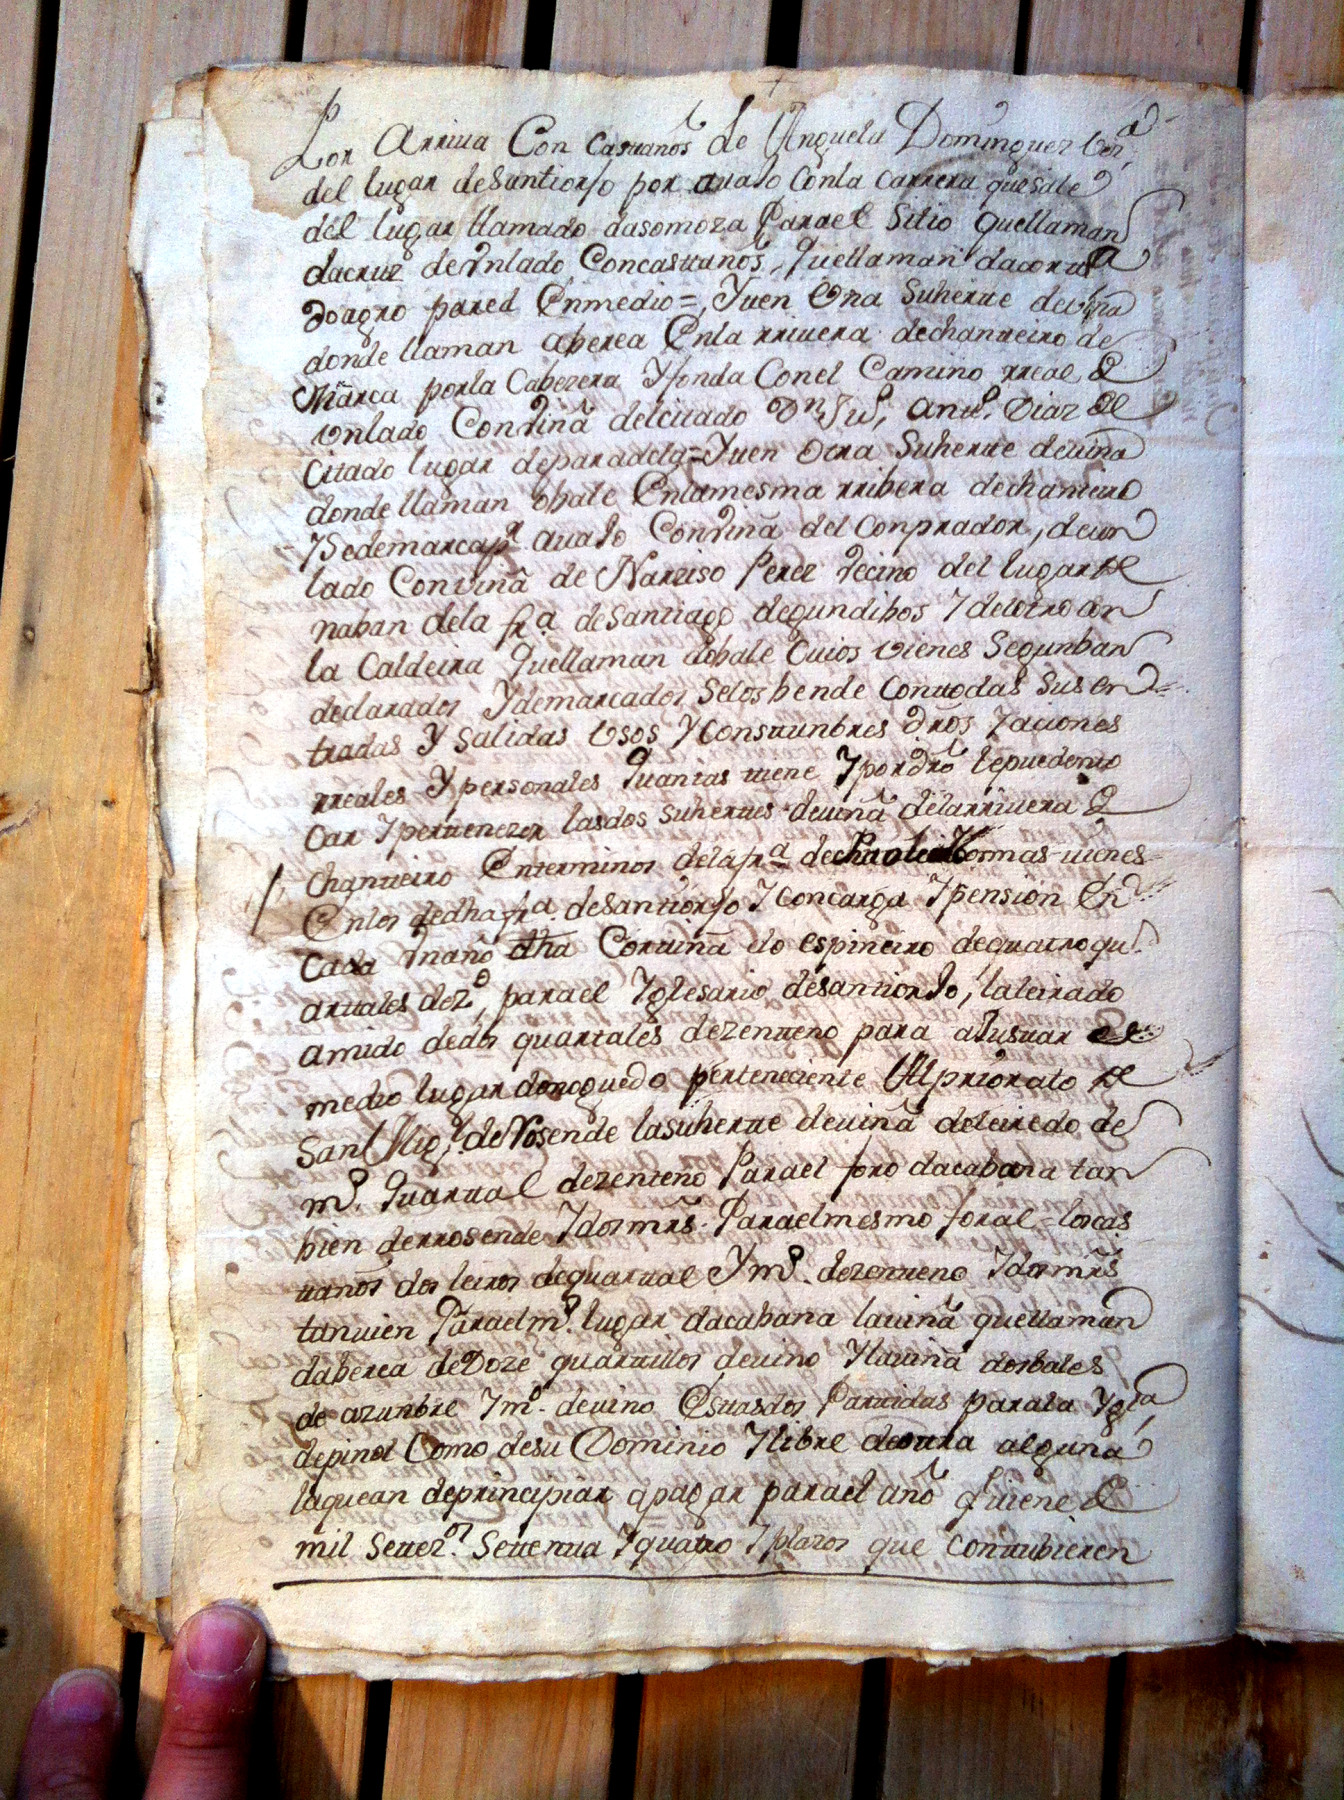 Por Arriva Con Castaños de Anguela Dominguez Vez.ª
del lugar desantiorjo por avajo Conla Carrera quesale
del lugar llamado dasomoza Parael Sitio quellaman
dacruz de Vnlado Concastaños, quellaman dacortiña
doagro pared Enmedio=, Yten Otra Suherte deviña
donde llaman aberea Enla rrivera dechanteiro de
Marca porla Cabezera Yfonda Conel Camino rreal de
Vnlado Conviña delcitado Dn. Ju.º, Antº. Diaz del
Citado lugar deparadela=Yten Otra Suherte deviña
donde llaman obale Enlamesma rribera dechanteiro
YSedemarcapr. avajo Conviña del Conprador, deun
lado Conviña de Narziso Perez Vecino del lugar de
naban dela fra. deSantiago degundibos Y delotro con
la Caldeira quellaman dobale Cuios vienes Segunban
declarados Ydemarcados Selos bende Contodas Sus en
tradas Y Salidas Vsos YConstunbres dros Yaciones
rreales Ypersonales quantas tiene Ypordro lepuedento
Car Ypertenezer lasdos Suhertes deviña delarrivera de
Chanteiro Enterminos delafra de Tormas vienes
Enlos dedha fra. desantiorjo YConcarga Ypension En
Cada Vnaño dha Cortiña do espineiro dequatro qu
artales dezº, parael Yglesario desantiorjo, laleirado
amido dedos quartales dezenteno para alusuar de
medio lugar doncoguedo perteneciente Alpriorato de
San Migl. deRosende lasuherte deviña deleiredo de
mº. quartal dezenteno Parael foro dacabana tan
bien derrosende Ydosmrs. Paraelmesmo foral=loscas
taños dos leiros dequartal Ymº. dezenteno Ydosmrs
tanvien Paraelmº. lugar dacabana laviña quellaman
daberea deDoze quartillos devino Ylaviña dosbales
de azunbre Ymº. devino Estasdos Partidas parala Yglª
depinol Como desu Dominio Ylibre deotra alguna
laquean deprincipiar apagar parael año qviene de
mil Setezos. Setenta Yquatro Yplazos que Contubieren